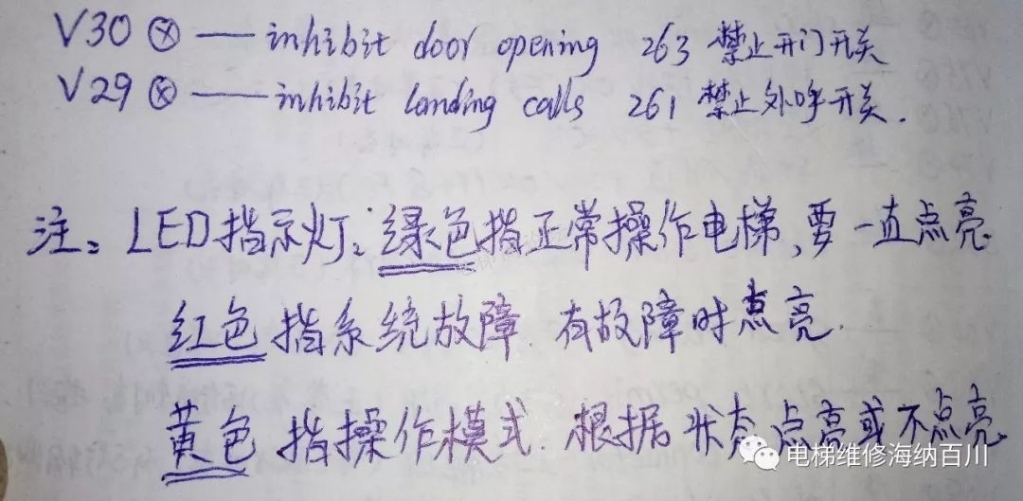 V30 ⊗ — inhibit door opening 263 禁止开门开关
V29 ⊗ — inhibit landing calls 261 禁止外呼开关.
注。LED指示灯。绿色指正常操作电梯,要一直点亮
红色指系统故障.有故障时点亮.
黄色指操作模式.根据状态点亮或不点亮
电梯维修海纳百川